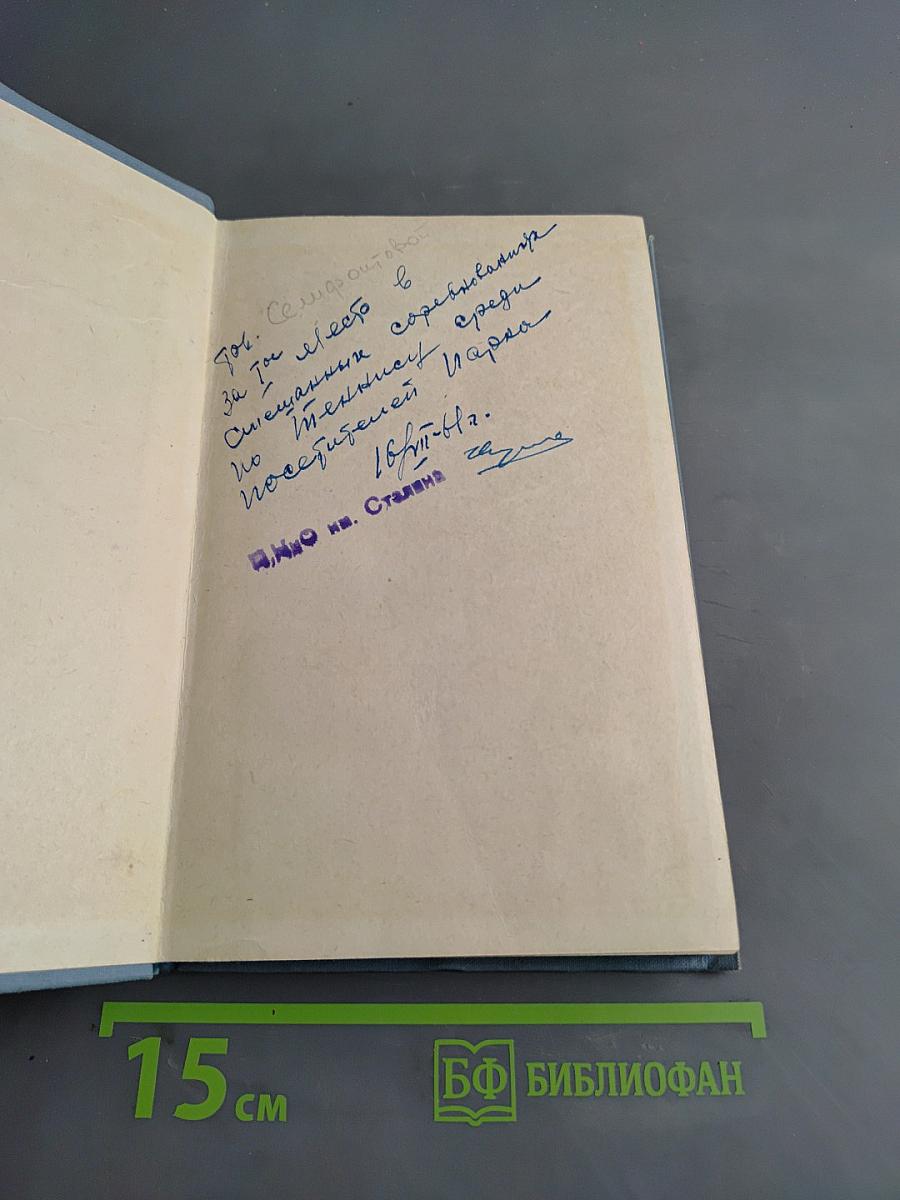 тов.
за Iое место в
смешанных соревнованиях
по теннису среди
посетителей Парка
16/VII-61 г.
П.КиО им. Сталина
15 см
БФ БИБЛИОФАН